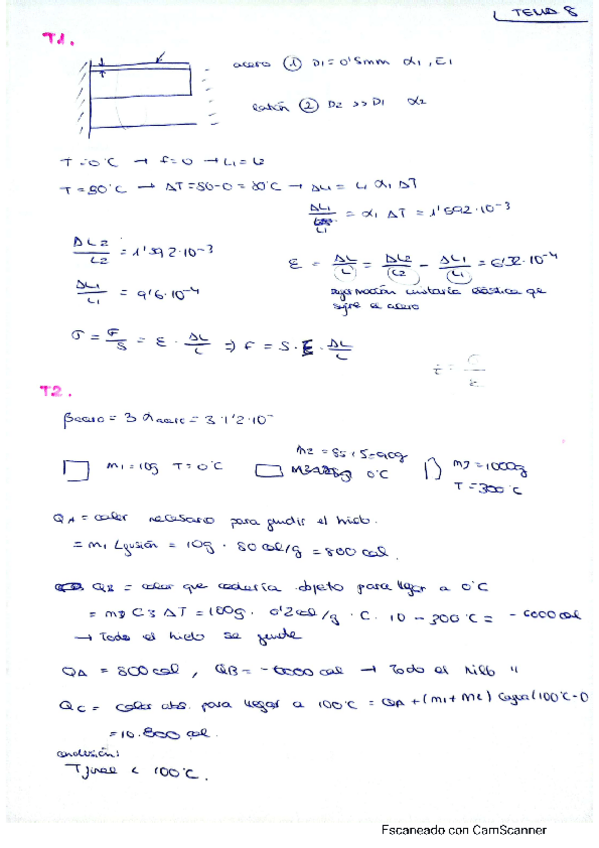 TEMA 8
T1.
acero ① D1=0'5mm α1, E1
latón ② D2 >> D1 α2
T=0°C → f=0 → L1=L2
T=80°C → ΔT=80-0=80°C → ΔL1 = L1 α1 ΔT
ΔL1/L1 = α1 ΔT = 1'592·10⁻³
ΔL2/L2 = 1'592·10⁻³
ε = ΔL/L = ΔL2/L2 - ΔL1/L1 = 6'32·10⁻⁴
ΔL1/L1 = 9'6·10⁻⁴
deformación unitaria elástica que
sufre el acero
σ = F/S = E · ΔL/L ⇒ F = S·E·ΔL/L
T2.
βacero = 3 αacero = 3·1'2·10⁻
m1=10g T=0°C
m2 = 85+5=90g
0°C
m3=1000g
T=300°C
QA = calor necesario para fundir el hielo.
= m1 Lfusión = 10g · 80 cal/g = 800 cal.
QB = calor que cedería objeto para llegar a 0°C
= m3 C3 ΔT = 100g · 0'2cal/g·C· |0-300°C = -6000cal
→ Todo el hielo se funde
QA = 800cal, QB = -6000 cal → Todo el hielo "
QC = calor abs. para llegar a 100°C = QA+(m1+m2) Cagua(100°C-0
= 10.800 cal.
conclusión:
Tfinal < 100°C.
Escaneado con CamScanner